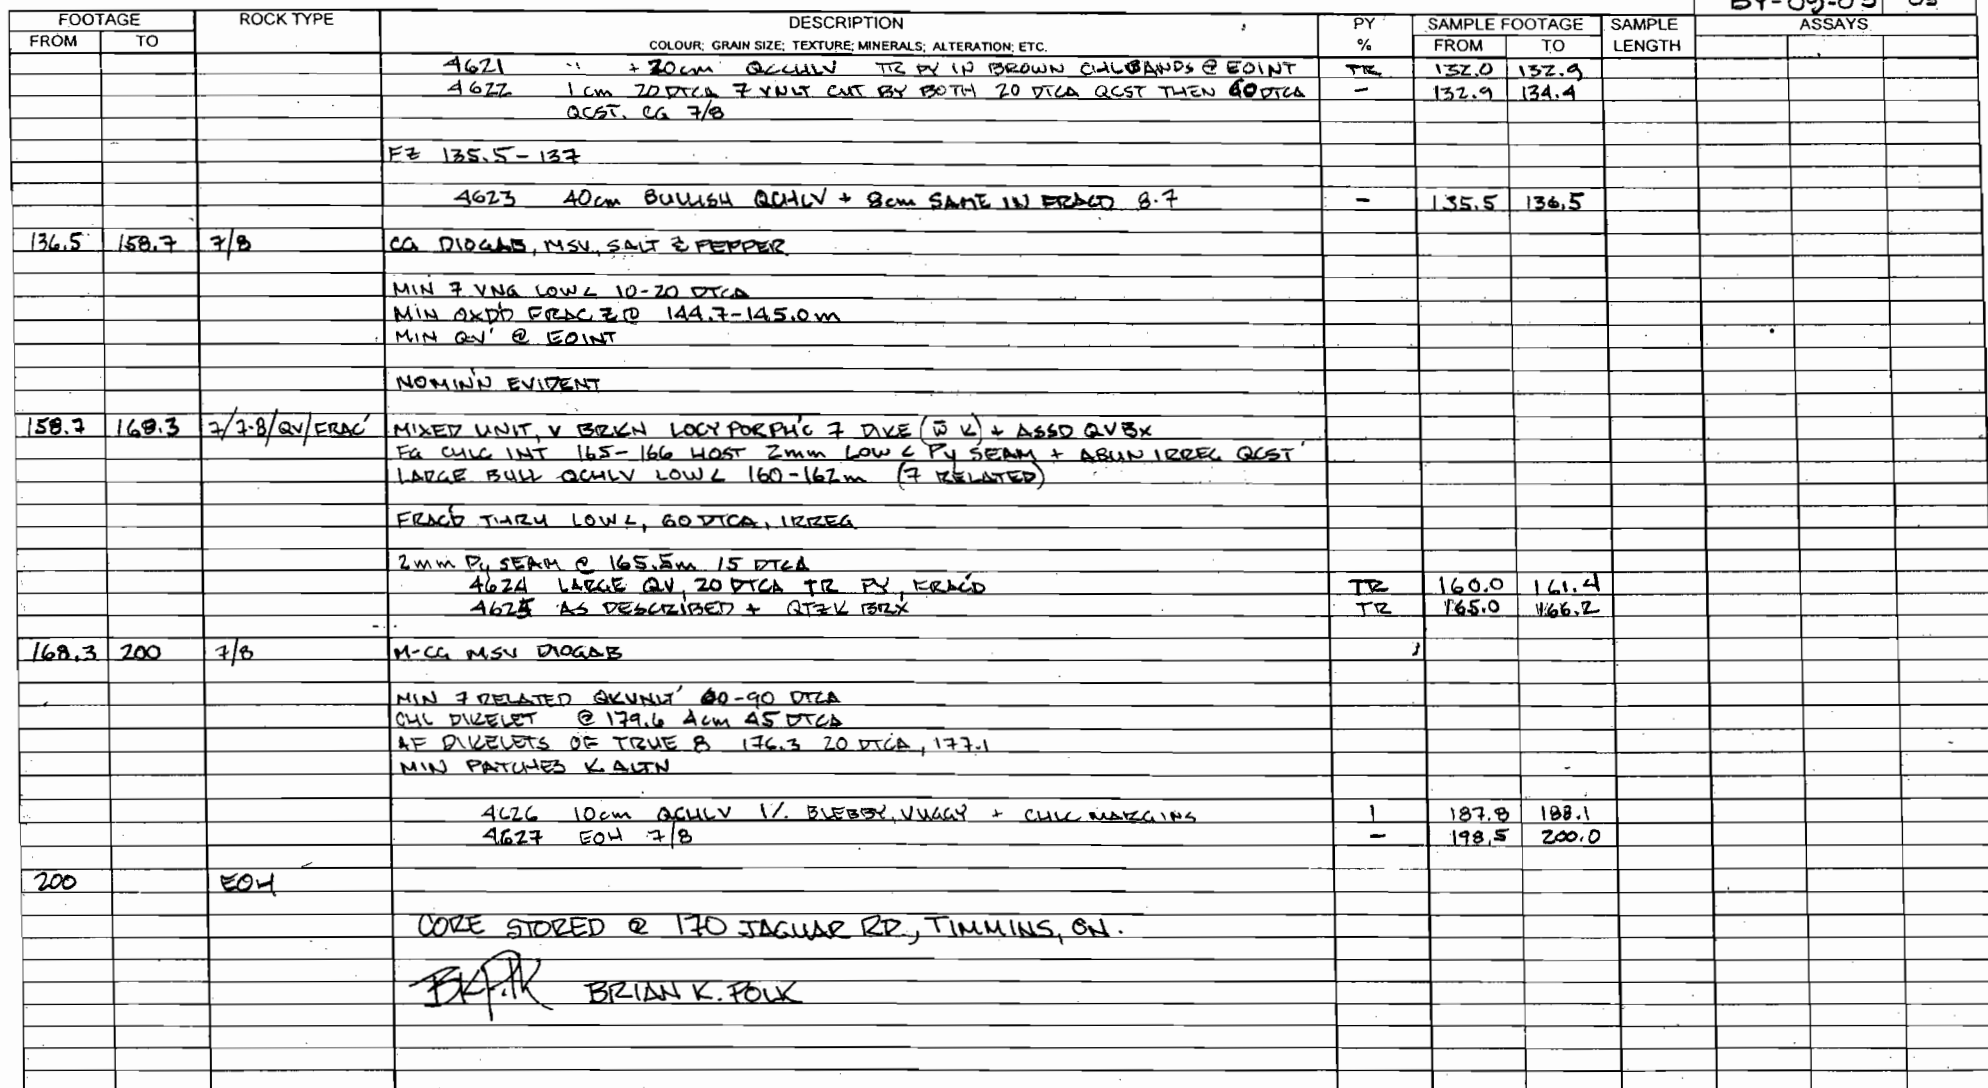 BY-09-05 05
FOOTAGE ROCK TYPE DESCRIPTION PY SAMPLE FOOTAGE SAMPLE ASSAYS
FROM TO COLOUR; GRAIN SIZE; TEXTURE; MINERALS; ALTERATION; ETC. % FROM TO LENGTH
4621 " +20cm QCCHLV TR PY IN BROWN CHLBANDS @ EOINT TR 132.0 132.9
4622 1cm 20 DTCA 7 VNLT CUT BY BOTH 20 DTCA QCST THEN 60 DTCA - 132.9 134.4
QCST. CG 7/8
FZ 135.5-137
4623 40cm BULLISH QCHLV + 8cm SAME IN FRACD 8.7 - 135.5 136.5
136.5 158.7 7/8 CG DIOGAB, MSV, SALT & PEPPER
MIN 7 VNG LOW ∠ 10-20 DTCA
MIN OXD'D FRAC Z @ 144.7-145.0m
MIN QV' @ EOINT
NO MIN'N EVIDENT
158.7 168.3 7/7-8/QV/FRAC' MIXED UNIT, V BRKN LOCY PORPH'C 7 DIKE (w̄ K) + ASSD QVBX
FG CHLC INT 165-166 HOST 2mm LOW ∠ PY SEAM + ABUN IRREG QCST'
LARGE BULL QCHLV LOW ∠ 160-162m (7 RELATED)
FRAC'D THRU LOW ∠, 60 DTCA, IRREG
2mm Py SEAM @ 165.5m 15 DTCA
4624 LARGE QV, 20 DTCA TR PY, FRAC'D TR 160.0 161.4
4625 AS DESCRIBED + QTZK BRX TR 165.0 166.2
168.3 200 7/8 M-CG MSV DIOGAB
MIN 7 RELATED QKVNLT' 60-90 DTCA
CHL DIKELET @ 179.6 4cm 45 DTCA
AF DIKELETS OF TRUE 8 176.3 20 DTCA, 177.1
MIN PATCHES K ALTN
4626 10cm QCHLV 1% BLEBBY, VUGGY + CHLC MARGINS 1 187.8 188.1
4627 EOH 7/8 - 198.5 200.0
200 EOH
CORE STORED @ 170 JAGUAR RD., TIMMINS, ON.
BRIAN K. POLK